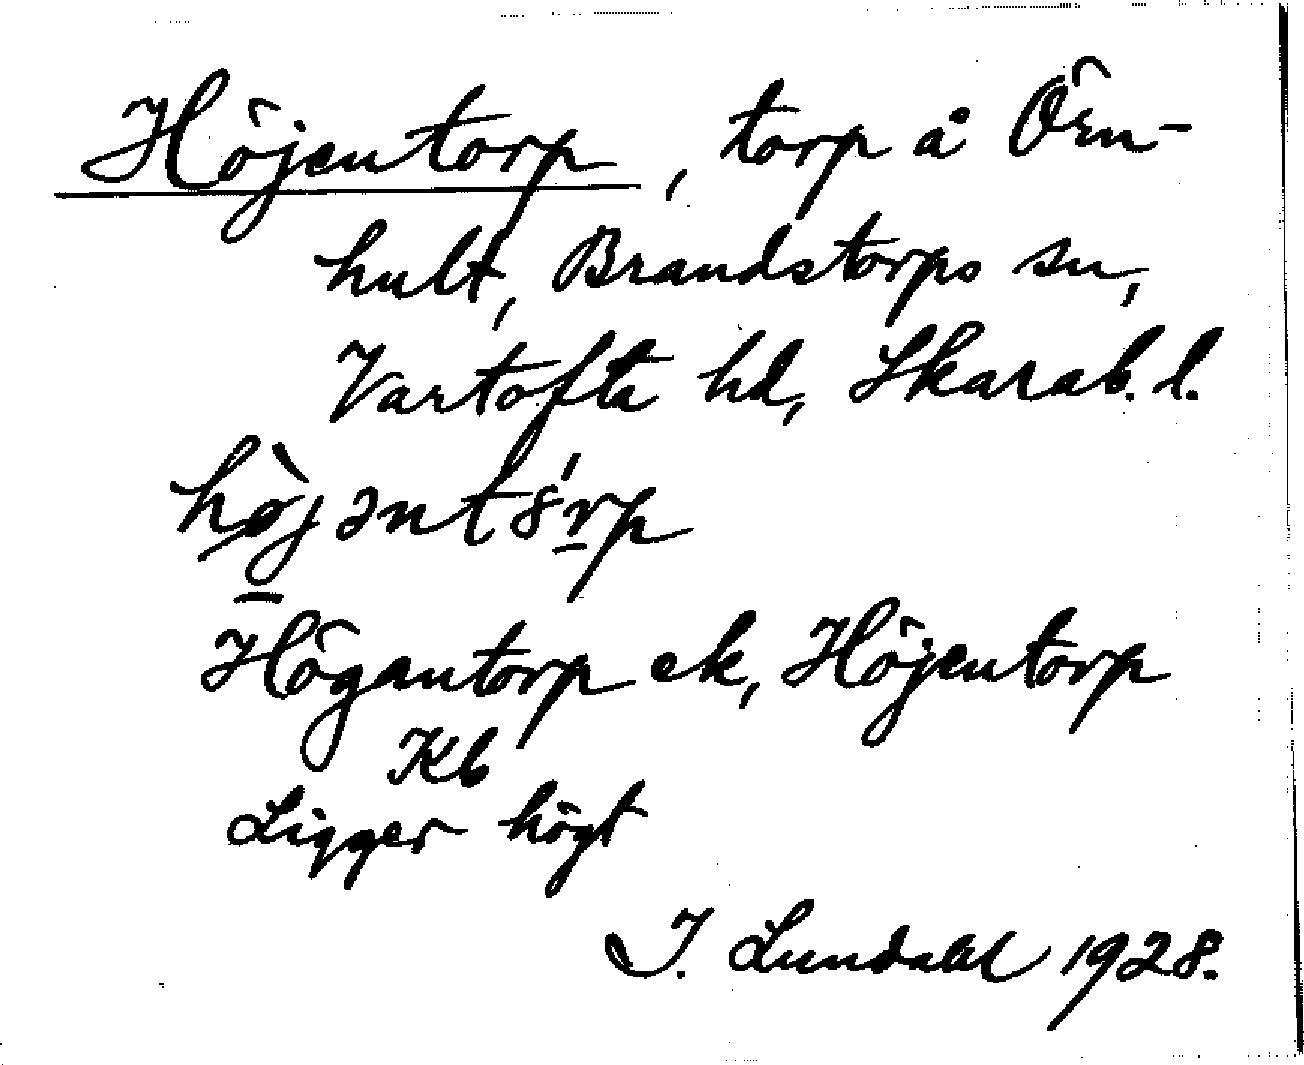 Höjentorp, torp å Örn-
hult, Brandstorps sn,
Vartofta hd, Skarab. l.
hø̀jənt8́rp
Högantorp ek, Höjentorp
Kb
Ligger högt
I. Lundahl 1928.